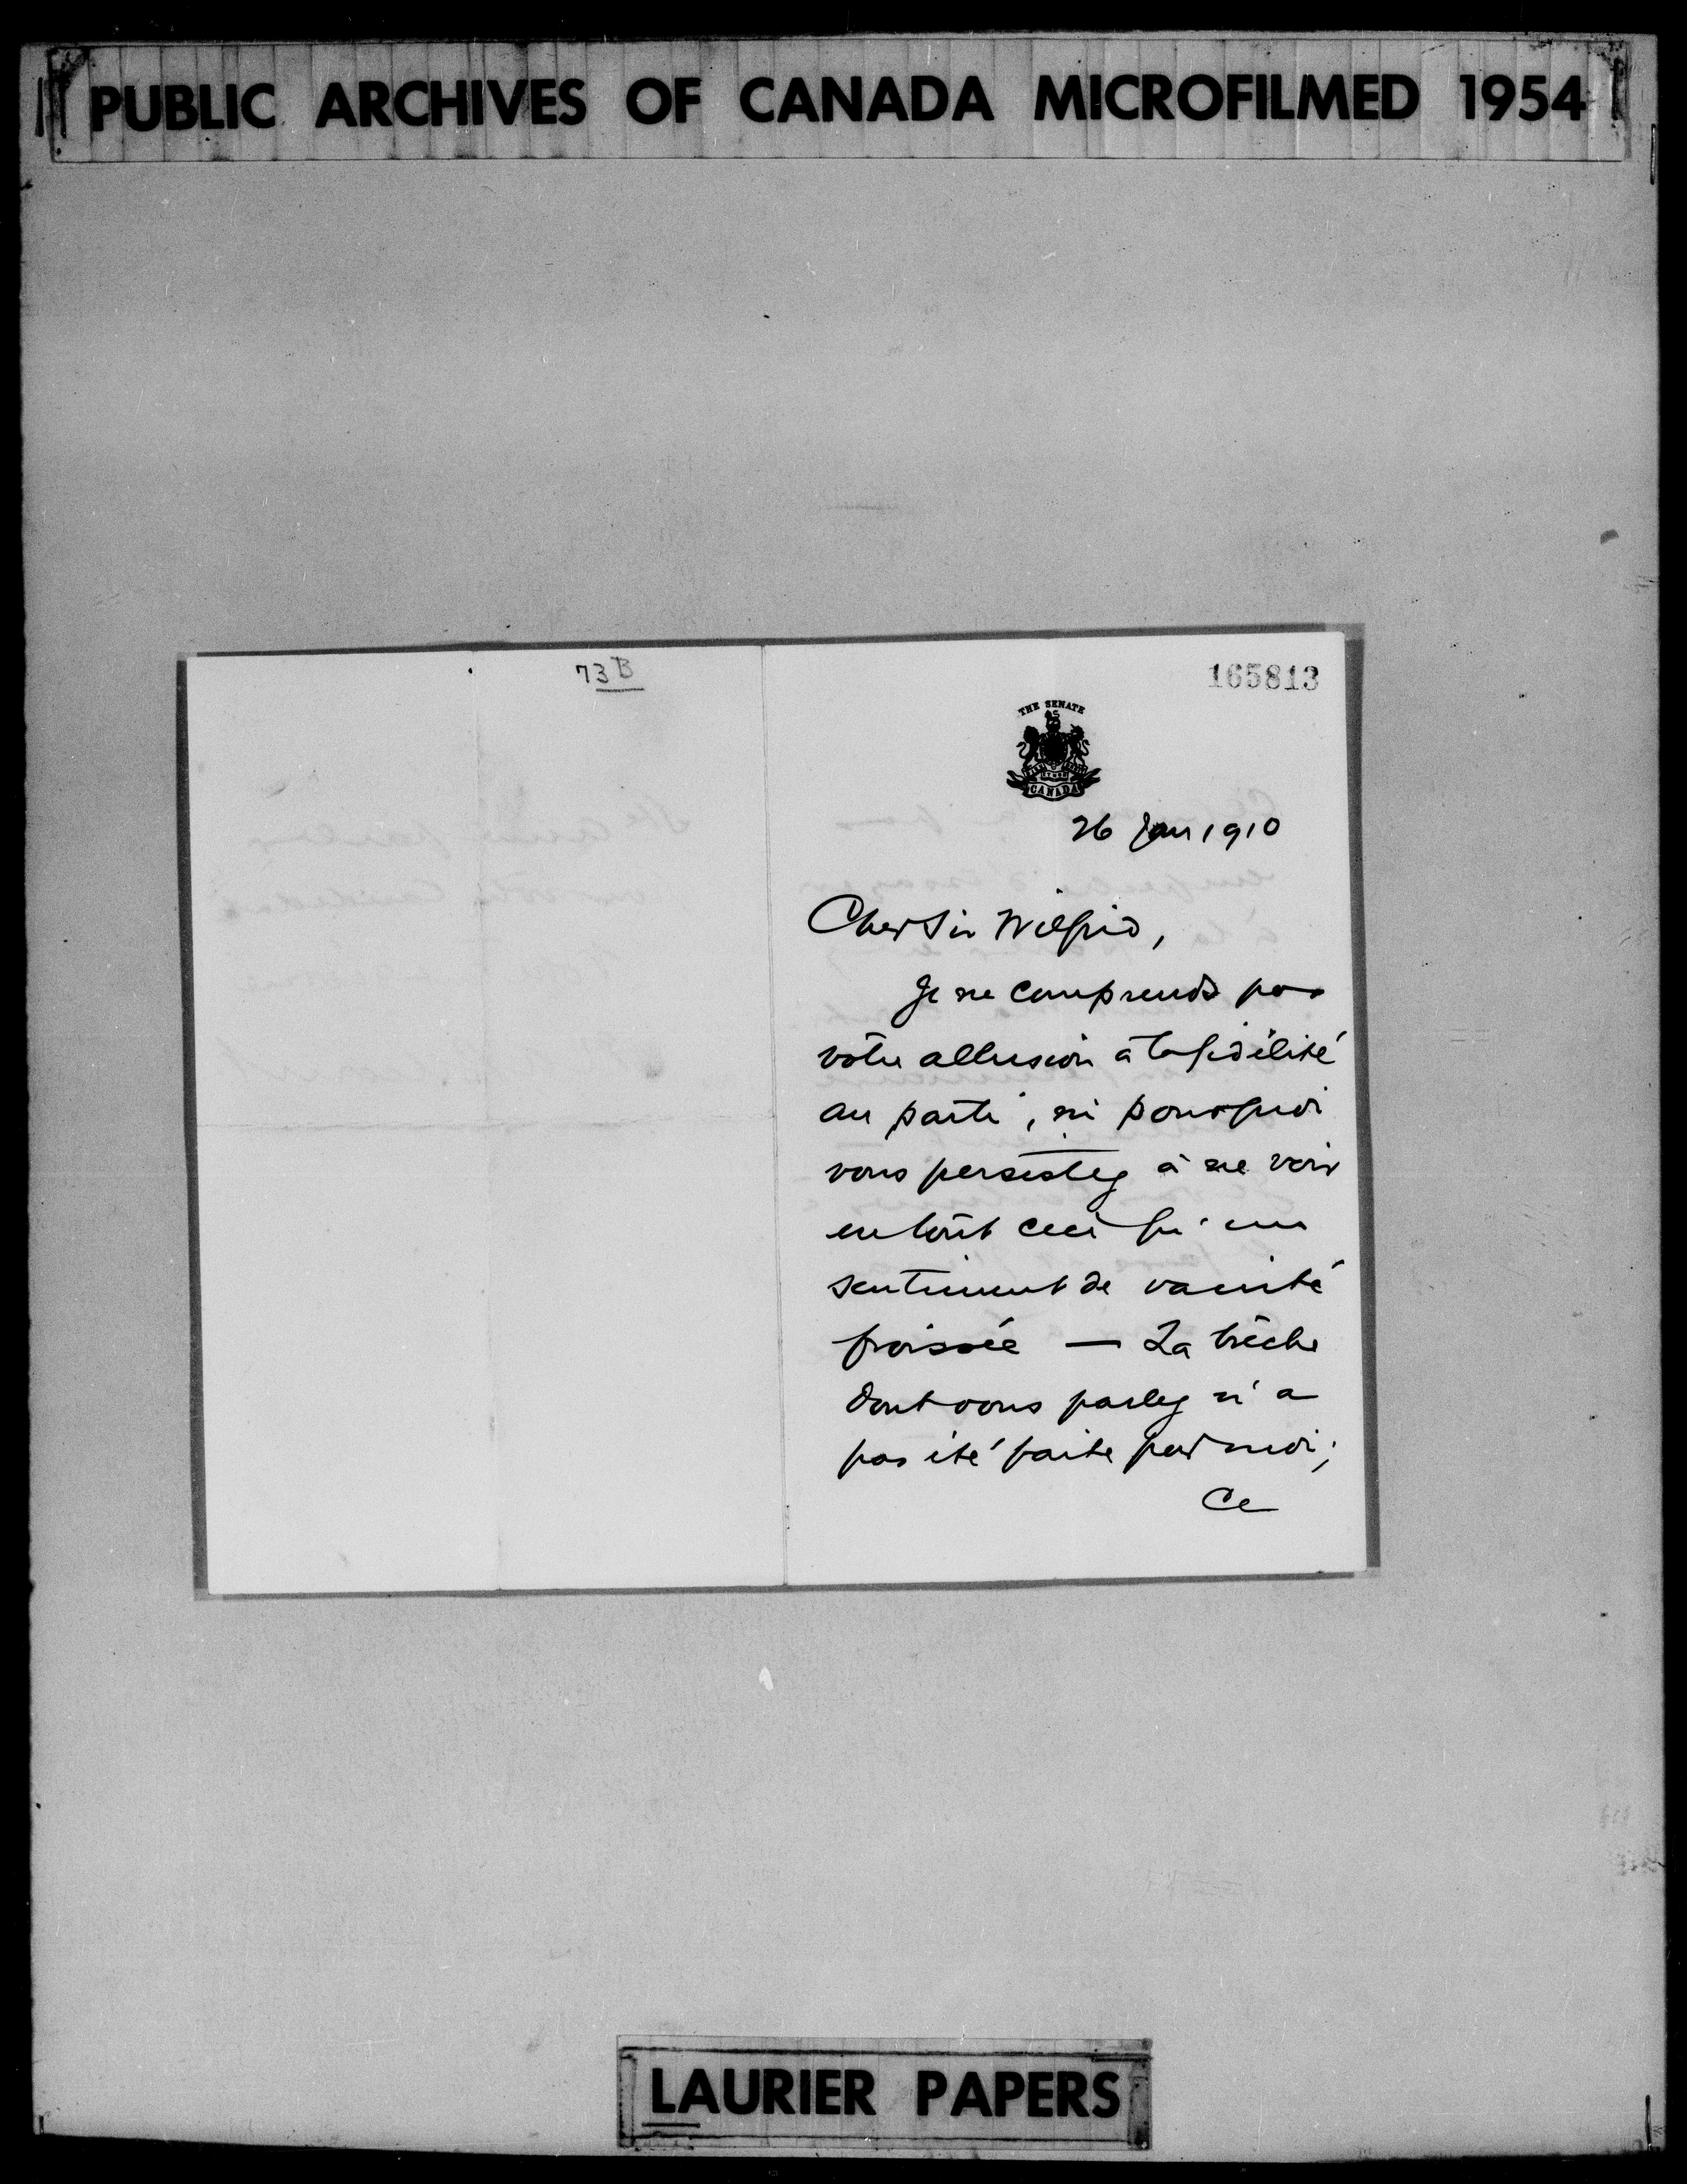 PUBLIC ARCHIVES OF CANADA MICROFILMED 1954
73 B
165813
THE SENATE
CANADA
26 Jan 1910
Cher Sir Wilfrid,
Je ne comprends pas
votre allusion à la fidélité
au parti, ni pourquoi
vous persistez à ne voir
en tout ceci qu'un
sentiment de vanité
froissée — La brèche
dont vous parlez n'a
pas été faite par moi;
Ce
LAURIER PAPERS